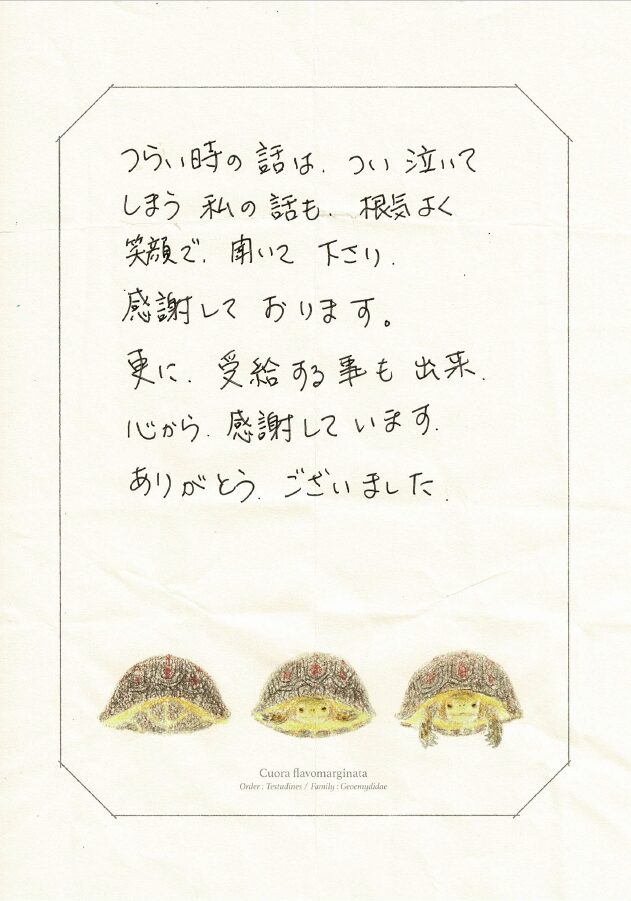 つらい時の話は、つい泣いて
しまう私の話も、根気よく
笑顔で、聞いて下さり、
感謝しております。
更に、受給する事も出来、
心から、感謝しています。
ありがとう、ございました。
Cuora flavomarginata
Order : Testudines / Family : Geoemydidae